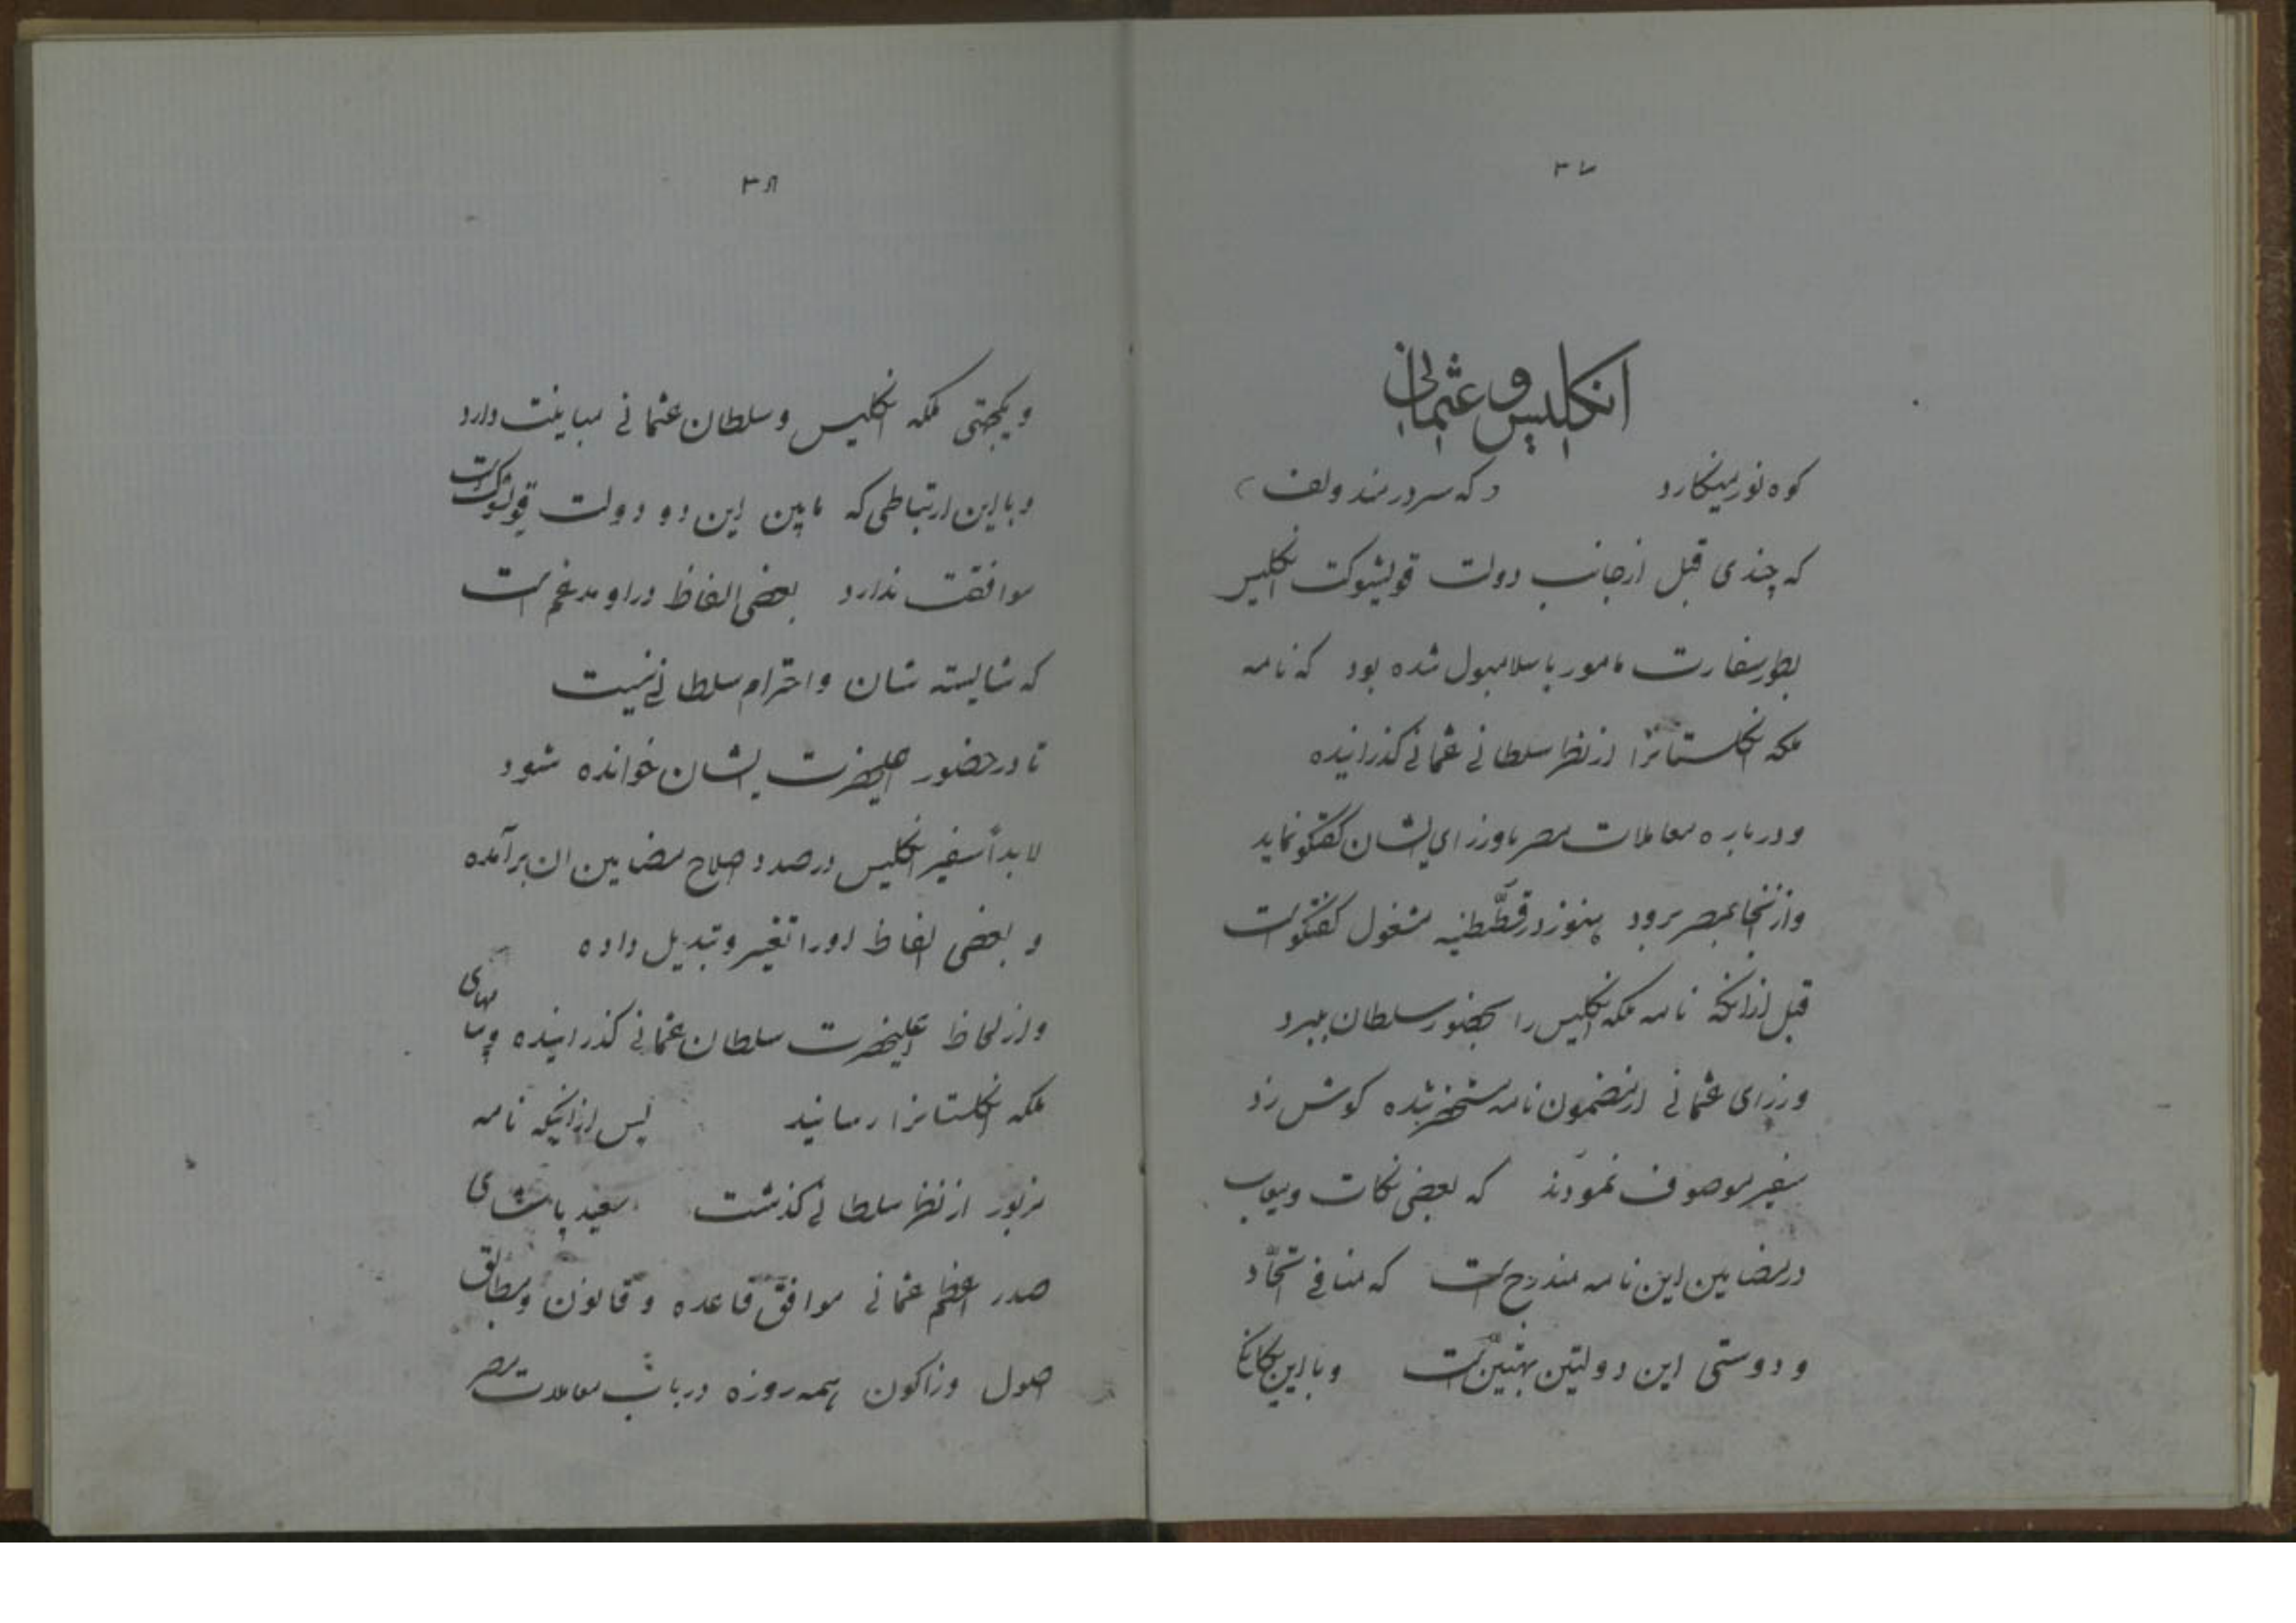 ۳۷
انگلیس و عثمانی
کوه نور مینکارد (که سردرمند ولف)
که چندی قبل از جانب دولت قویشوکت انکلیس
بطور سفارت مامور باسلامبول شده بود که نامه
ملکه انکلستانرا از نظر سلطانی عثمانی کذرانیده
و درباره معاملات مصر با وزرای ایشان کفتکو نماید
و از آنجا بمصر برود هنوز در قسطنطنیه مشغول کفتکو است
قبل از آنکه نامه ملکه انکلیس را بحضور سلطان ببرد
وزرای عثمانی از مضمون نامه مستحضر شده کوش زد
سفیر موصوف نمودند که بعضی نکات و معایب
در مضامین این نامه مندرج است که منافی اتحاد
و دوستی این دولتین بهیتین است و با این یکانکی
۳۸
و یکجهتی ملکه انکلیس و سلطان عثمانی مباینت دارد
و با این ارتباطی که مابین این دو دولت قویشوکت است
موافقت ندارد بعضی الفاظ در او مدغم است
که شایسته شان و احترام سلطانی نیست
تا در حضور اعلیحضرت ایشان خوانده شود
لابداً سفیر انکلیس در صدد اصلاح مضامین ان برآمده
و بعضی الفاظ او را تغییر و تبدیل داده
و از لحاظ اعلیحضرت سلطان عثمانی کذرانیده و پیامهای
ملکه انکلستانرا رسانید پس از آنیکه نامه
مزبور از نظر سلطانی کذشت سعید پاشای
صدر اعظم عثمانی موافق قاعده و قانون و مطابق
اصول وزاکون همه روزه در باب معاملات مصر